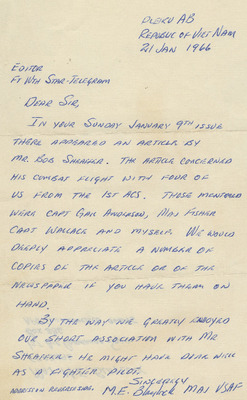 PLEIKU AB
REPUBLIC OF VIET NAM
21 JAN 1966
EDITOR
FT WTH STAR-TELEGRAM
DEAR SIR,
IN YOUR SUNDAY JANUARY 9TH ISSUE
THERE APPEARED AN ARTICLE BY
MR. BOB SHEAFFER. THE ARTICLE CONCERNED
HIS COMBAT FLIGHT WITH FOUR OF
US FROM THE 1ST ACS. THOSE MENTIONED
WERE CAPT GAIL ANDERSON, MAJ FISHER
CAPT WALLACE AND MYSELF. WE WOULD
DEEPLY APPRECIATE A NUMBER OF
COPIES OF THE ARTICLE OR OF THE
NEWSPAPER IF YOU HAVE THEM ON
HAND.
BY THE WAY WE GREATLY ENJOYED
OUR SHORT ASSOCIATION WITH MR
SHEAFFER - HE MIGHT HAVE DONE WELL
AS A FIGHTER PILOT.
SINCERELY
ADDRESS ON REVERSE SIDE. M.E. MAJ USAF